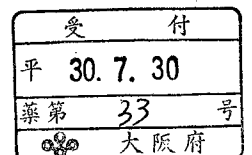 受 付
平 30. 7. 30
薬第 33 号
大阪府